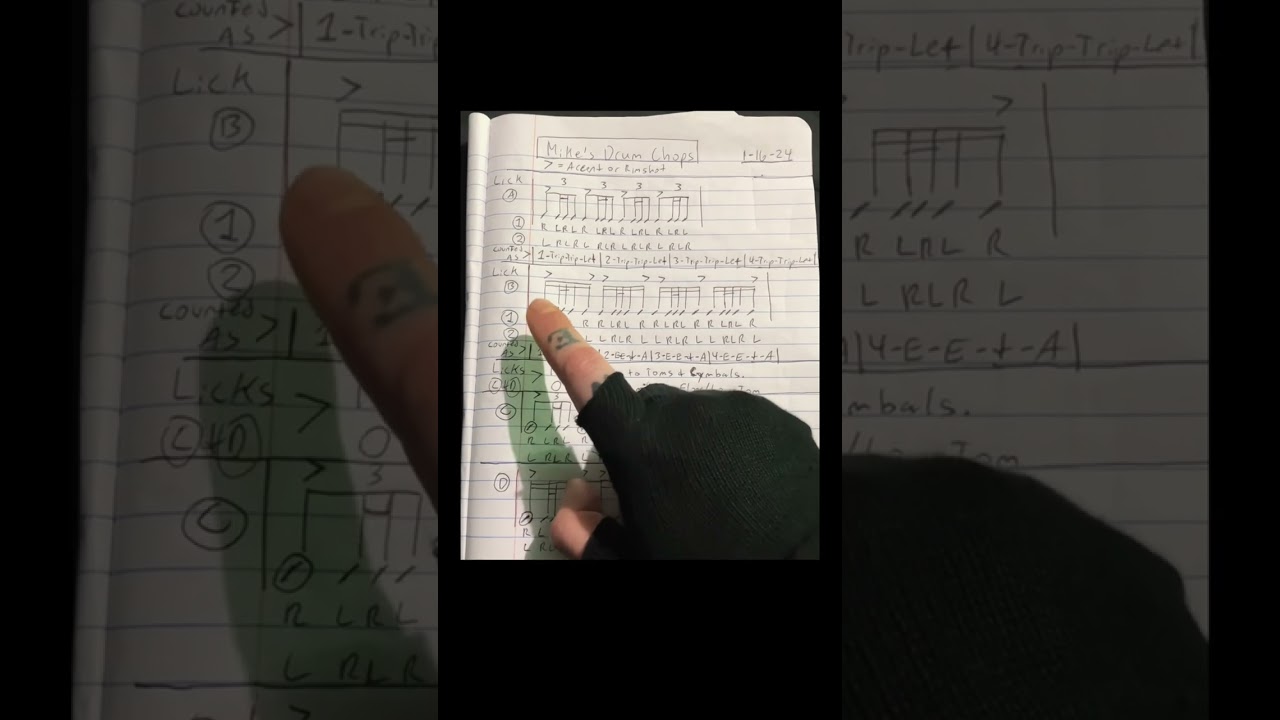 Mike's Drum Chops
1-16-24
> = Accent or Rimshot
Lick
3 3 3 3
A
1 R LRL R LRL R LRL R LRL
2 L RLR L RLR L RLR L RLR
Counted As > | 1-Trip-Trip-Let | 2-Trip-Trip-Let | 3-Trip-Trip-Let | 4-Trip-Trip-Let |
Lick
> > > > > > > >
B
1 R R LRL R R LRL R R LRL R
2 L L RLR L L RLR L L RLR L
Counted As > | 2-E-E-+-A | 3-E-E-+-A | 4-E-E-+-A |
Licks to Toms + Cymbals.
C+D > O Tom
> 3
C
R LRL R
L RLR L
D
R L
L RL